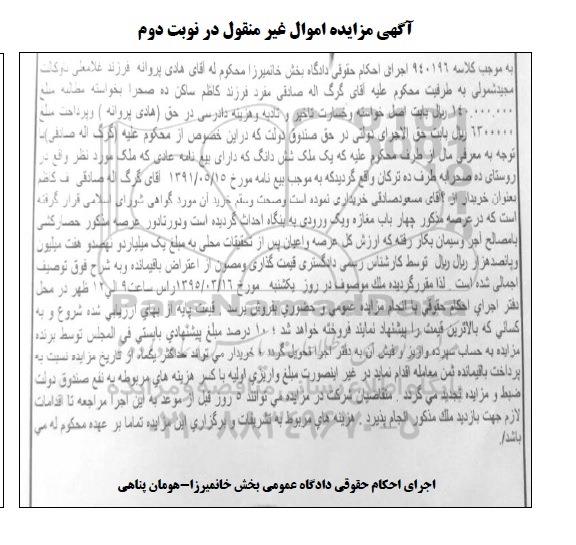 آگهی مزایده اموال غیر منقول در نوبت دوم
به موجب کلاسه ۹۴۰۱۹۶ اجرای احکام حقوقی دادگاه بخش خانمیرزا محکوم له آقای هادی پروانه فرزند غلامعلی باوکالت
مجیدشمولی به طرفیت محکوم علیه آقای گرگ اله صادقی مفرد فرزند کاظم ساکن ده صحرا بخواسته مطالبه مبلغ
ریال بابت اصل خواسته وخسارت تاخیر و تادیه وهزینه دادرسی در حق (هادی پروانه ) وپرداخت مبلغ
۶۳۰۰۰۰۰ ریال بابت حق الاجرای دولتی در حق صندوق دولت که دراین خصوص از محکوم علیه (گرگ اله صادقی)با
توجه به معرفی مال از طرف محکوم علیه که یک ملک شش دانگ که دارای بیع نامه عادی که ملک مورد نظر واقع در
روستای ده صحرابه طرف ده ترکان واقع گردیدکه به موجب بیع نامه مورخ ۱۳۹۱/۰۵/۱۵ آقای گرگ اله صادقی ف کاظم
بعنوان خریدار از آقای مسعودصادقی خریداری نموده است وصحت وسقم خرید آن مورد گواهی شورای اسلامی قرار گرفته
است که درعرصه مذکور چهار باب مغازه ویک ورودی به بنگاه احداث گردیده است ودورتادور عرصه مذکور حصارکشی
بامصالح آجر وسیمان بکار رفته که ارزش کل عرصه واعیان پس از تحقیقات محلی به مبلغ یک میلیاردو نهصدو هفت میلیون
وپانصدهزار ریال ریال توسط کارشناس رسمی دادگستری قیمت گذاری ومصون از اعتراض باقیمانده وبه شرح فوق توصیف
اجمالی شده است . لذا مقررگردیده ملک موصوف در روز یکشنبه مورخ ۱۳۹۵/۰۳/۱۶راس ساعت۹ الی۱۲ ظهر در محل
دفتر اجرای احکام حقوقی از طریق مزایده عمومی و حضوری بفروش برسد . قیمت پایه از بهای ارزیابی شده شروع و به
کسانی که بالاترین قیمت را پیشنهاد نمایند فروخته خواهد شد ؛ ۱۰ درصد مبلغ پیشنهادی بایستی فی المجلس توسط برنده
مزایده به حساب سپرده واریز و فیش آن به دفتر اجرا تحویل گردد ؛ خریدار می تواند حداکثر یکماه از تاریخ مزایده نسبت به
پرداخت باقیمانده ثمن معامله اقدام نماید در غیر اینصورت مبلغ واریزی اولیه با کسر هزینه های مربوطه به نفع صندوق دولت
ضبط و مزایده تجدید می گردد . متقاضیان شرکت در مزایده می توانند ۵ روز قبل از موعد به این اجرا مراجعه تا اقدامات
لازم جهت بازدید ملک مذکور انجام پذیرد . هزینه های مربوط به تشریفات و برگزاری این مزایده تماما بر عهده محکوم له می
باشد/.
اجرای احکام حقوقی دادگاه عمومی بخش خانمیرزا-هومان پناهی
ParsNamadData
۰۲۱-۸۸۳۴۹۶۷۰-۵